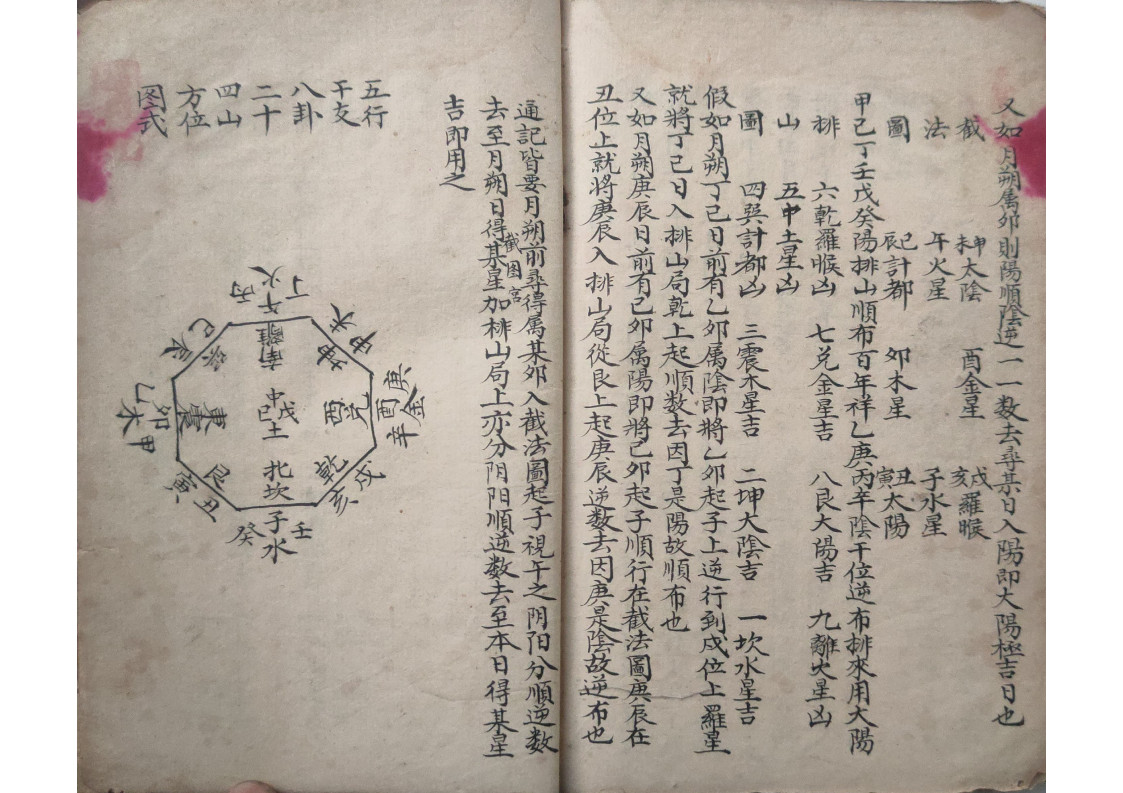 又如月朔属卯則陽順陰逆一一数去尋某日入陽即大陽極吉日也
截　未申太陰　酉金星　亥戌羅睺
法　午火星　子水星
圖　辰巳計都　卯木星　寅丑太陽
甲己丁壬戊癸陽排山順布百年祥乙庚丙辛陰干位逆布排來用大陽
排　六乾羅睺凶　七兑金星吉　八艮大陽吉　九離火星凶
山　五中土星凶
圖　四巽計都凶　三震木星吉　二坤大陰吉　一坎水星吉
假如月朔丁己日前有乙卯属陰即將乙卯起子上逆行到戍位上羅星
就將丁己日入排山局乾上起順数去因丁是陽故順布也
又如月朔庚辰日前有己卯属陽即將己卯起子順行在截法圖庚辰在
丑位上就將庚辰入排山局從艮上起庚辰逆数去因庚是陰故逆布也
通記皆要月朔前尋得属某卯入截法圖起子視干之阴阳分順逆数
去至月朔日得某星加排山局上亦分阴阳順逆数去至本日得某星
截图宫
吉即用之
五行
干支
八卦
二十
四山
方位
图式
丙午丁火
南離
坤
申
庚酉辛金
西兑
乾
戌亥
壬子癸水
北坎
艮
丑寅
甲卯乙木
東震
辰巳
中戊己土